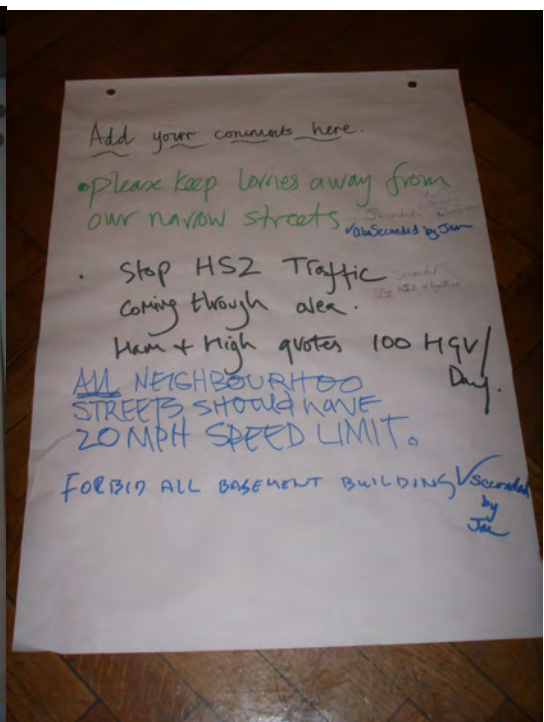 Add your comments here.
• Please keep lorries away from
our narrow streets
Seconded
✓ Also Seconded by Jm
• Stop HS2 Traffic
Seconded
Stop HS2 altogether
coming through area.
Ham + High quotes 100 HGV/
Day.
ALL NEIGHBOURHOO
STREETS SHOULD HAVE
20 MPH SPEED LIMIT.
FORBID ALL BASEMENT BUILDING ✓ Seconded
by
Jm